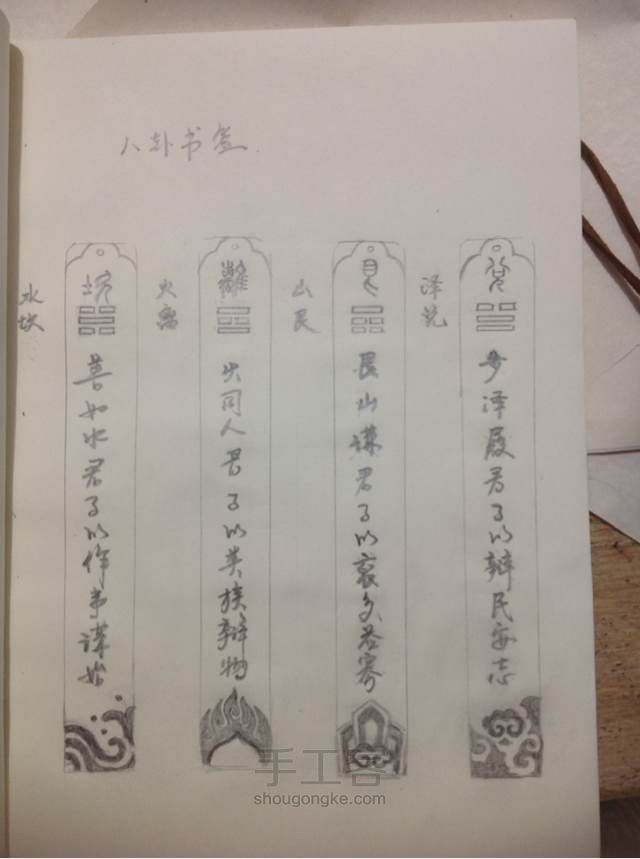 八卦书签
水坎
坎
善如水君子以作事谋始
火离
離
火同人君子以类族辩物
山艮
艮
艮山谦君子以裒多益寡
泽兑
兌
步泽履君子以辩民安志
手工客
shougongke.com